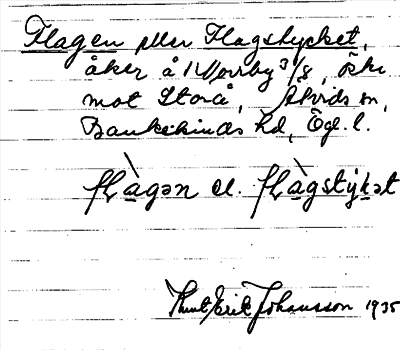 Flagen eller Flagstycket,
åker å Norrby 3/8, Öster
mot Storå, Åtvids sn,
Bankekinds hd, Ögl. l.
flàgən el. flàgstýkət
Knut Erik Johansson 1935